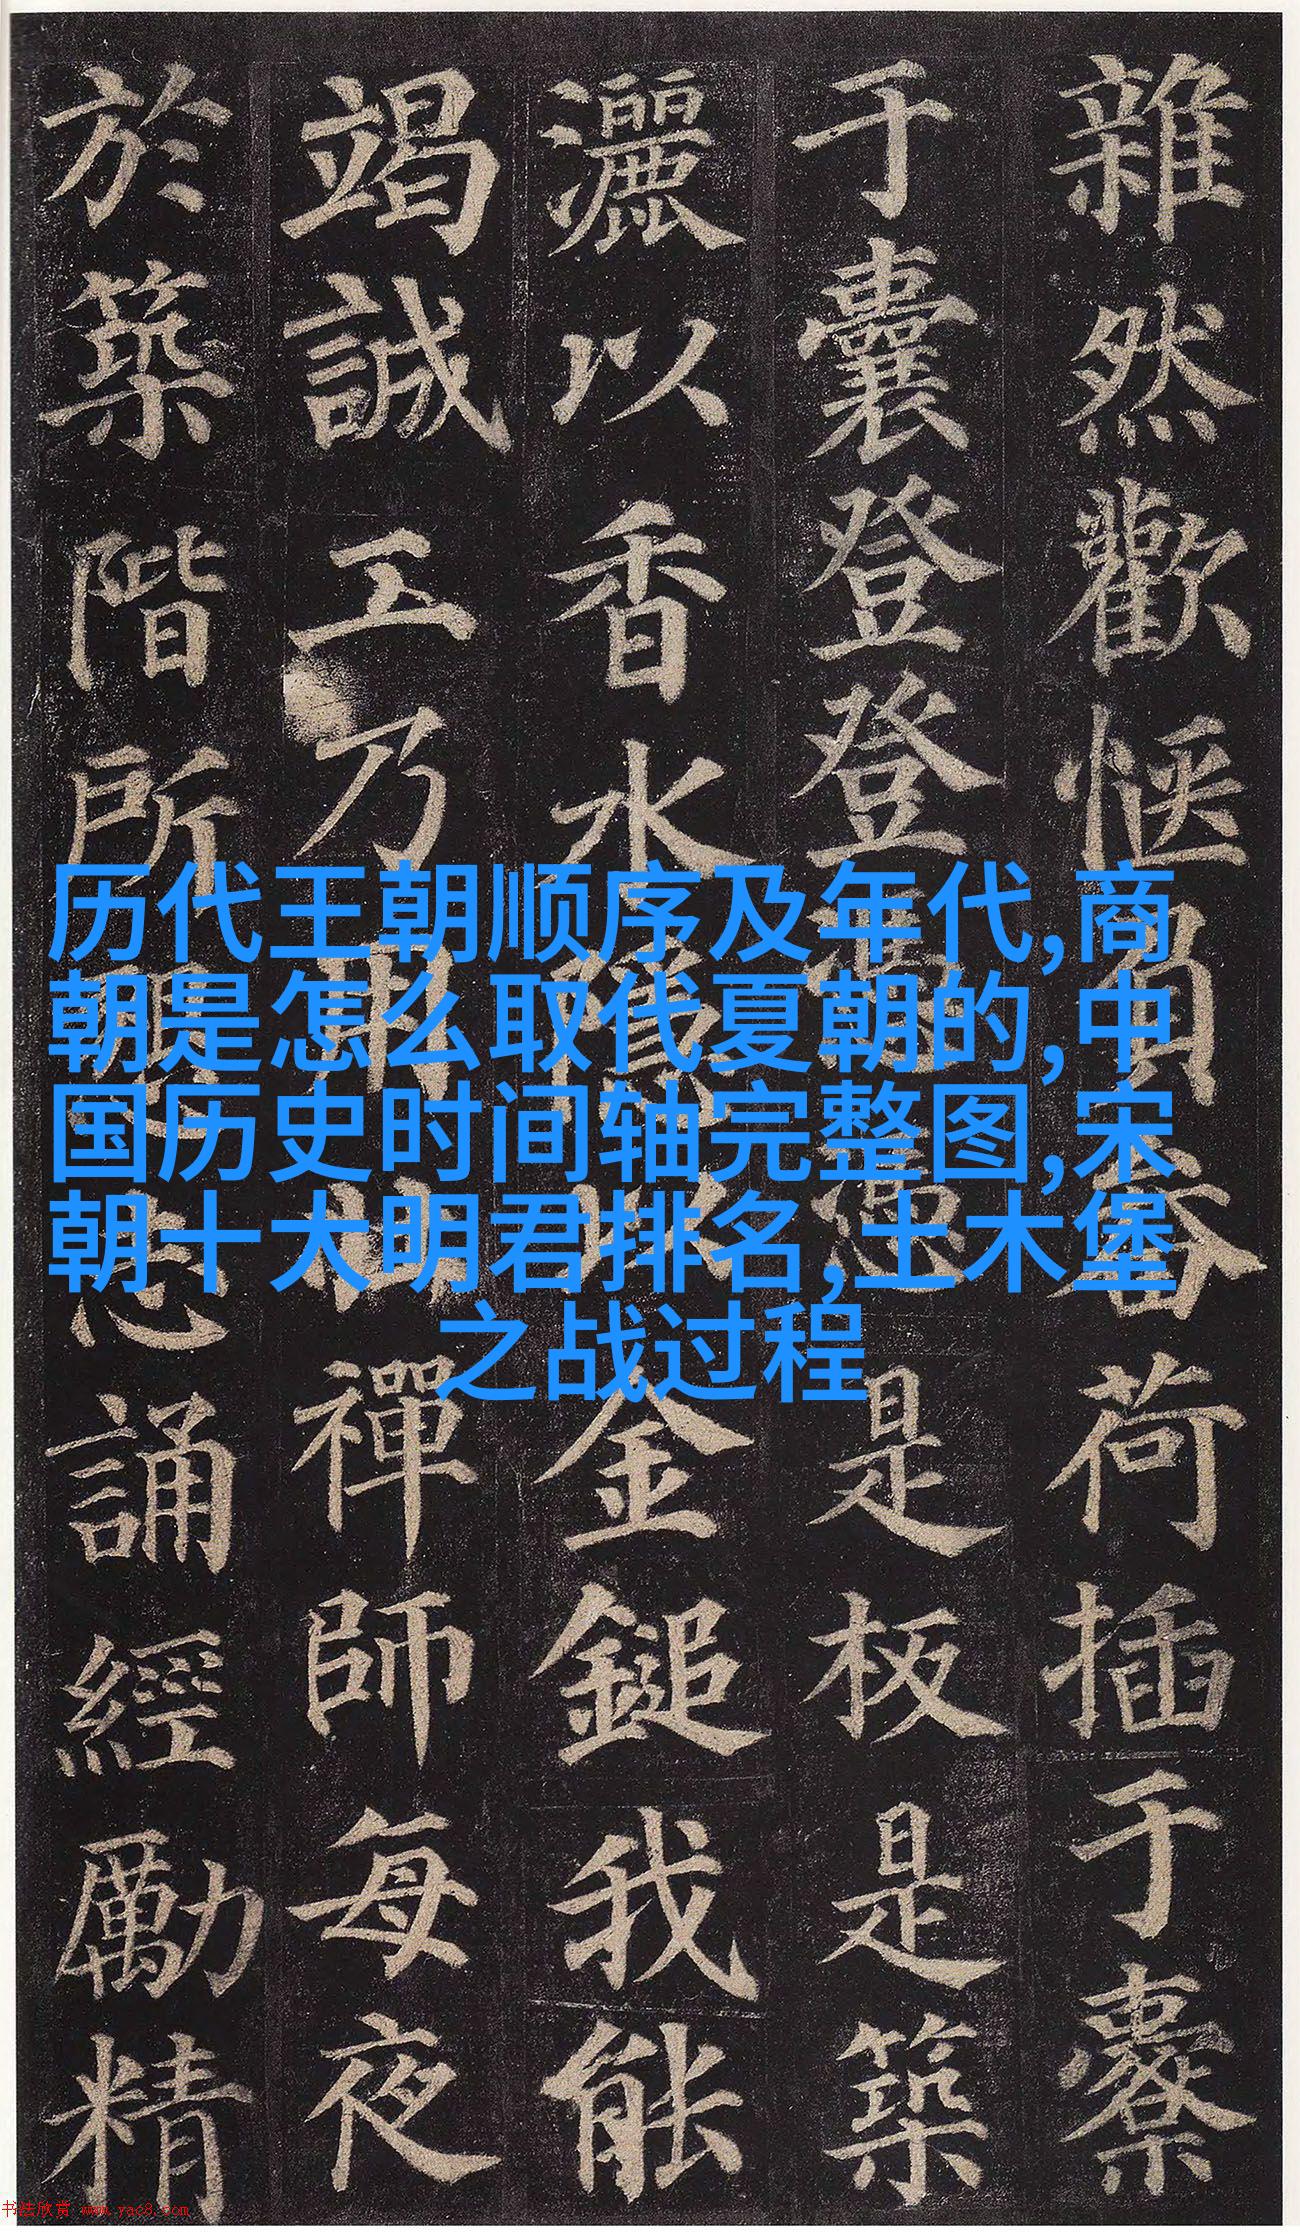 雜然歡愜負畚荷插于橐
于囊登登憑憑是板是築
灑以香水隱以金鎚我能
竭誠工乃用壯禪師每夜
於築階所懇志誦經勵精
历代王朝顺序及年代,商
朝是怎么取代夏朝的,中
国历史时间轴完整图,宋
朝十大明君排名,土木堡
之战过程
书法欣赏 www.yac8.com